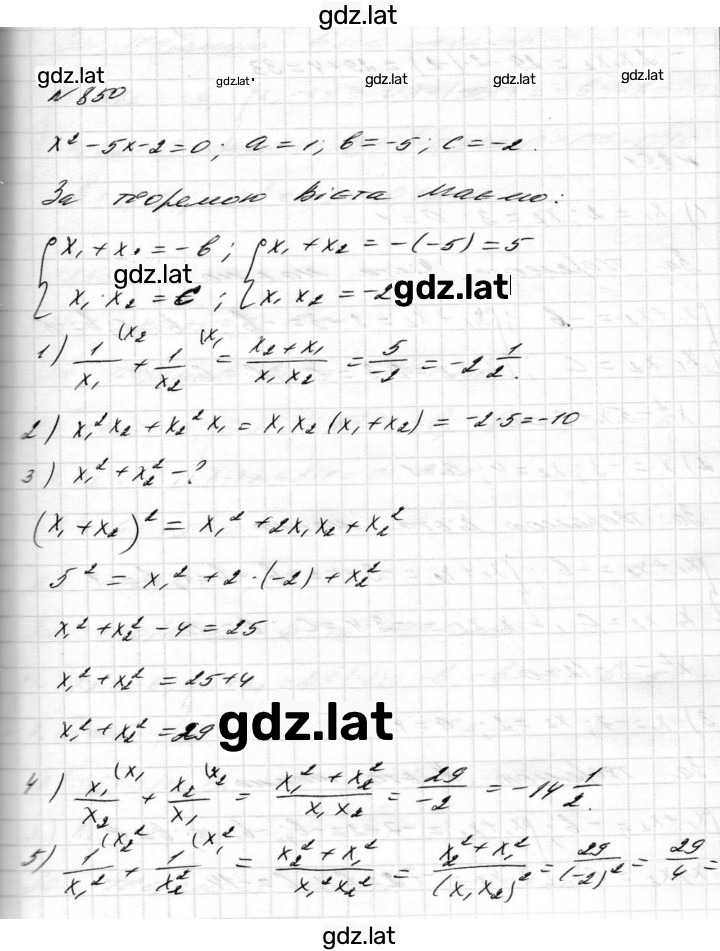 gdz.lat
gdz.lat gdz.lat gdz.lat gdz.lat gdz.lat
№ 850
x² - 5x - 2 = 0; a = 1; b = -5; c = -2.
За теоремою Вієта маємо:
{ x₁ + x₂ = -b; { x₁ + x₂ = -(-5) = 5
gdz.lat gdz.lat
{ x₁ · x₂ = c; { x₁ x₂ = -2
1) 1/x₁ (x₂ + 1/x₂ (x₁ = (x₂ + x₁)/(x₁ x₂) = 5/(-2) = -2 1/2.
2) x₁² x₂ + x₂² x₁ = x₁ x₂ (x₁ + x₂) = -2 · 5 = -10
3) x₁² + x₂² - ?
(x₁ + x₂)² = x₁² + 2x₁ x₂ + x₂²
5² = x₁² + 2 · (-2) + x₂²
x₁² + x₂² - 4 = 25
x₁² + x₂² = 25 + 4
x₁² + x₂² = 29
gdz.lat
4) x₁/x₂ (x₁ + x₂/x₁ (x₂ = (x₁² + x₂²)/(x₁ x₂) = 29/(-2) = -14 1/2.
5) 1/x₁² (x₂² + 1/x₂² (x₁² = (x₂² + x₁²)/(x₁² x₂²) = (x₂² + x₁²)/(x₁ x₂)² = 29/(-2)² = 29/4 =
gdz.lat